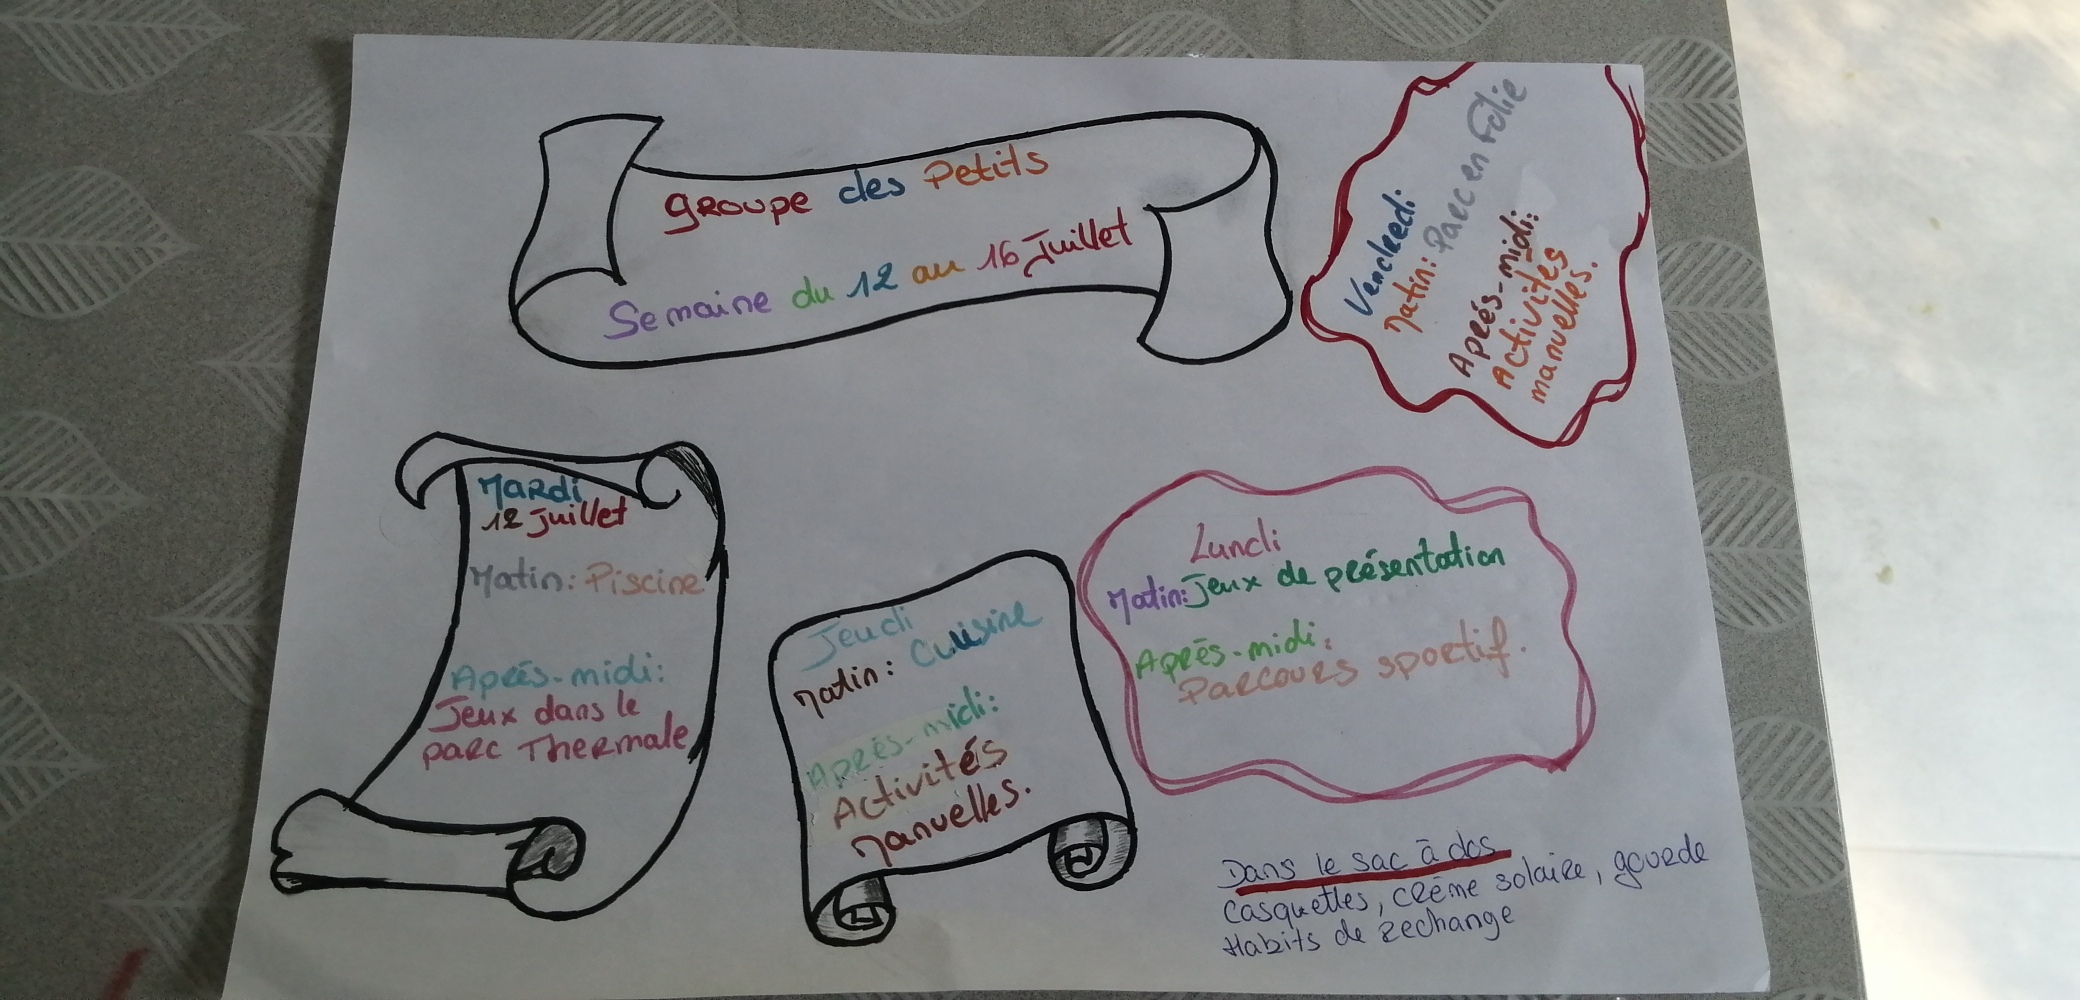 groupe des Petits
Semaine du 12 au 16 Juillet
Vendredi
Matin: Parc en Folie
Après-midi:
Activités
manuelles.
Mardi
12 juillet
Matin: Piscine
Après-midi:
Jeux dans le
parc Thermale
Jeudi
Matin: Cuisine
Après-midi:
Activités
Manuelles.
Lundi
Matin: Jeux de présentation
Après-midi:
Parcours sportif.
Dans le sac à dos
Casquettes, crème solaire, gourde
Habits de rechange